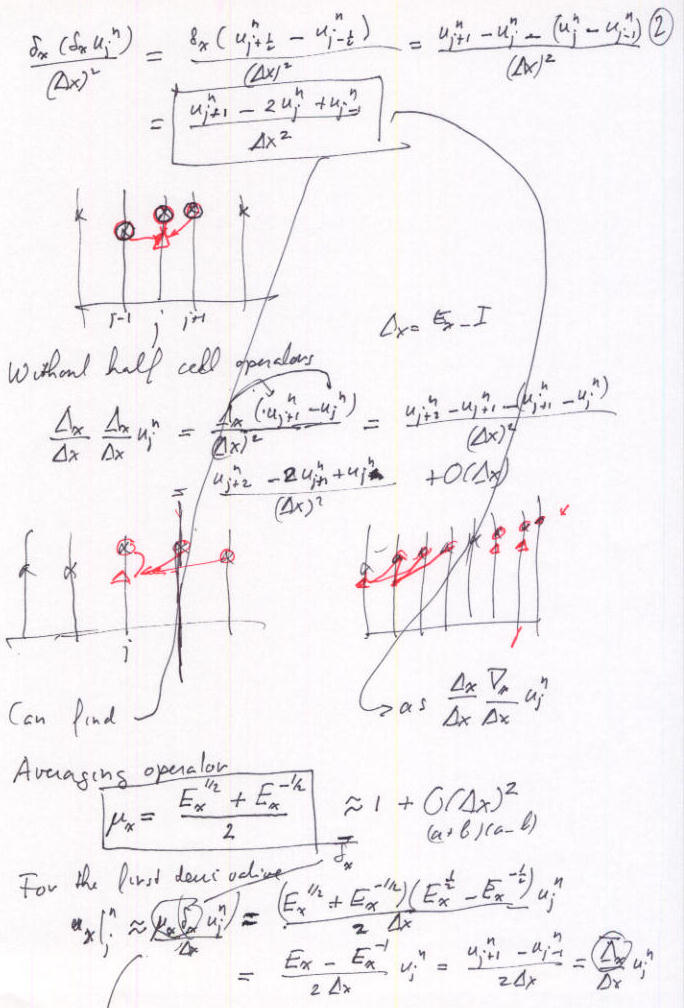 ②
δₓ(δₓ uⱼⁿ)/(Δx)² = δₓ(uⁿ_{j+½} − uⁿ_{j−½})/(Δx)² = (uⁿ_{j+1} − uⱼⁿ − (uⱼⁿ − uⁿ_{j−1}))/(Δx)²
= (uⁿ_{j+1} − 2uⱼⁿ + uⁿ_{j−1})/Δx²
j-1 j j+1
Δₓ = Eₓ − I
Without half cell operators
Δₓ/Δx Δₓ/Δx uⱼⁿ = Δₓ(uⁿ_{j+1} − uⱼⁿ)/(Δx)² = (uⁿ_{j+2} − uⁿ_{j+1} − (uⁿ_{j+1} − uⱼⁿ))/(Δx)²
= (uⁿ_{j+2} − 2uⁿ_{j+1} + uⱼⁿ)/(Δx)² + O(Δx)
j
Can find
as Δₓ/Δx ∇ₓ/Δx uⱼⁿ
Averaging operator
μₓ = (Eₓ^{1/2} + Eₓ^{-1/2})/2 ≈ 1 + O(Δx)²
(a+b)(a−b)
For the first derivative δ̄ₓ
uₓ|ⱼⁿ ≈ (μₓ δₓ uⱼⁿ)/Δx = (Eₓ^{1/2} + Eₓ^{-1/2})(Eₓ^{1/2} − Eₓ^{-1/2})/(2 Δx) uⱼⁿ
= (Eₓ − Eₓ^{-1})/(2Δx) uⱼⁿ = (uⁿ_{j+1} − uⁿ_{j−1})/(2Δx) = Δ̄ₓ/Δx uⱼⁿ